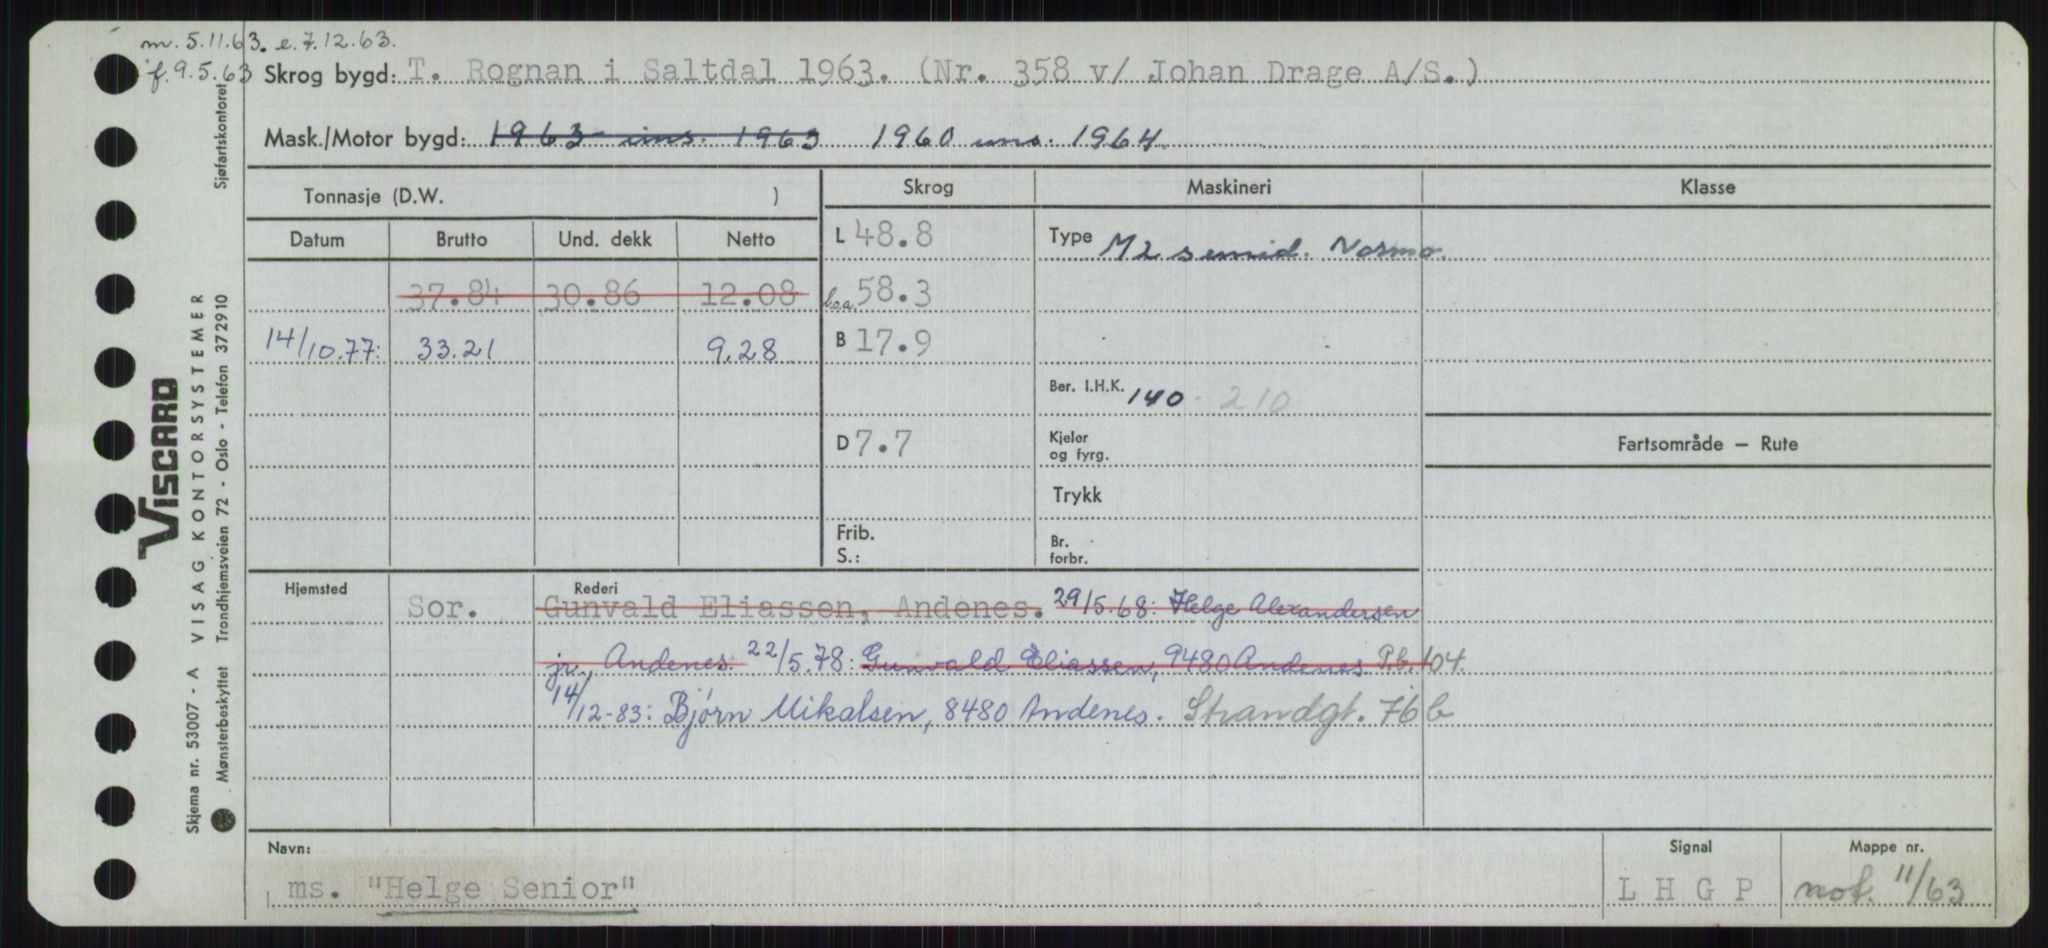 m. 5.11.63. e. 7.12.63.
f. 9.5.63 Skrog bygd: T. Rognan i Saltdal 1963. (Nr. 358 v/ Johan Drage A/S.)
Mask./Motor bygd: 1963 ins. 1963 1960 ins. 1964.
Tonnasje (D.W. ) Skrog Maskineri Klasse
Datum Brutto Und. dekk Netto L 48.8 Type M 2 semid. Normo.
37.84 30.86 12.08 loa. 58.3
14/10.77: 33.21 9.28 B 17.9
Ber. I.H.K. 140. 210
D 7.7 Kjeler og fyrg. Fartsområde — Rute
Trykk
Frib. Br.
S.: forbr.
Hjemsted Rederi
Sor. Gunvald Eliassen, Andenes. 29/5.68: Helge Alexandersen
jr., Andenes. 22/5.78: Gunvald Eliassen, 9480 Andenes P.b. 104.
14/12-83: Bjørn Mikalsen, 8480 Andenes. Strandgt. 76 b
Navn: Signal Mappe nr.
ms. "Helge Senior" L H G P not. 11/63
Skjema nr. 53007 - A VISAG KONTORSYSTEMER Sjøfartskontoret
Mønsterbeskyttet Trondhjemsveien 72 - Oslo - Telefon 372910
VISCARD